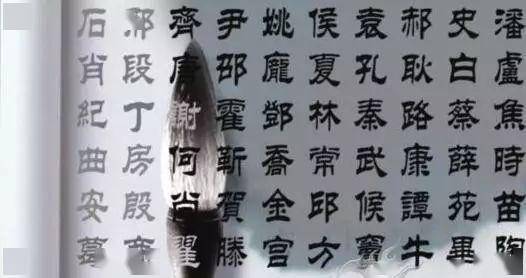 潘盧焦時苗陶
史白蔡薛苑畢
郝耿路康譚牛
袁孔秦武候竇
侯夏林常邱方
姚龐鄧喬金宫
尹邵霍靳賀滕
齊唐謝何尚翟
段丁房殷
石肖紀曲安葛